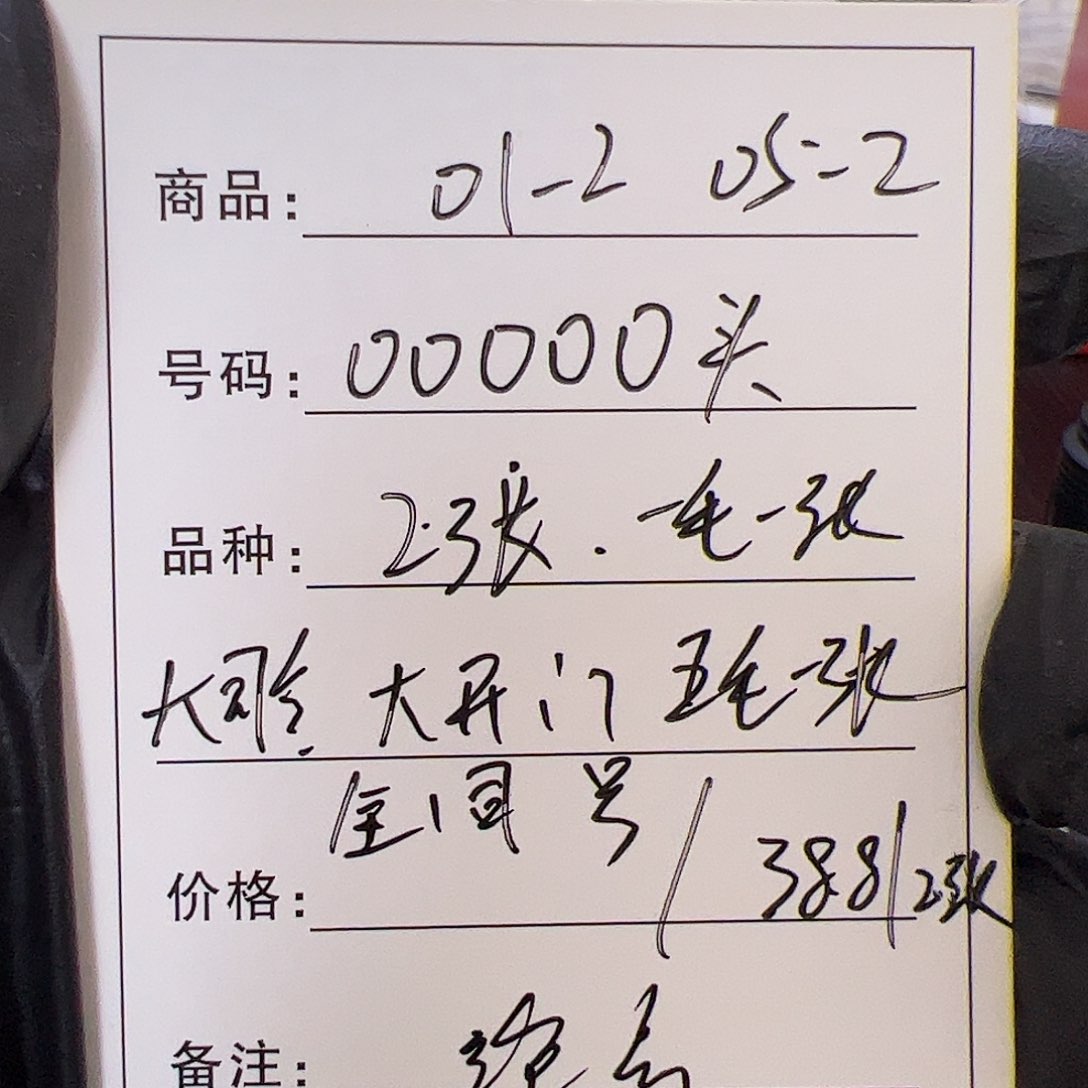 商品： 01-2 05-2
号码： 00000头
品种： 2张．一毛一张
大开门 五毛一张
全同号
价格： / 388/2张
备注：